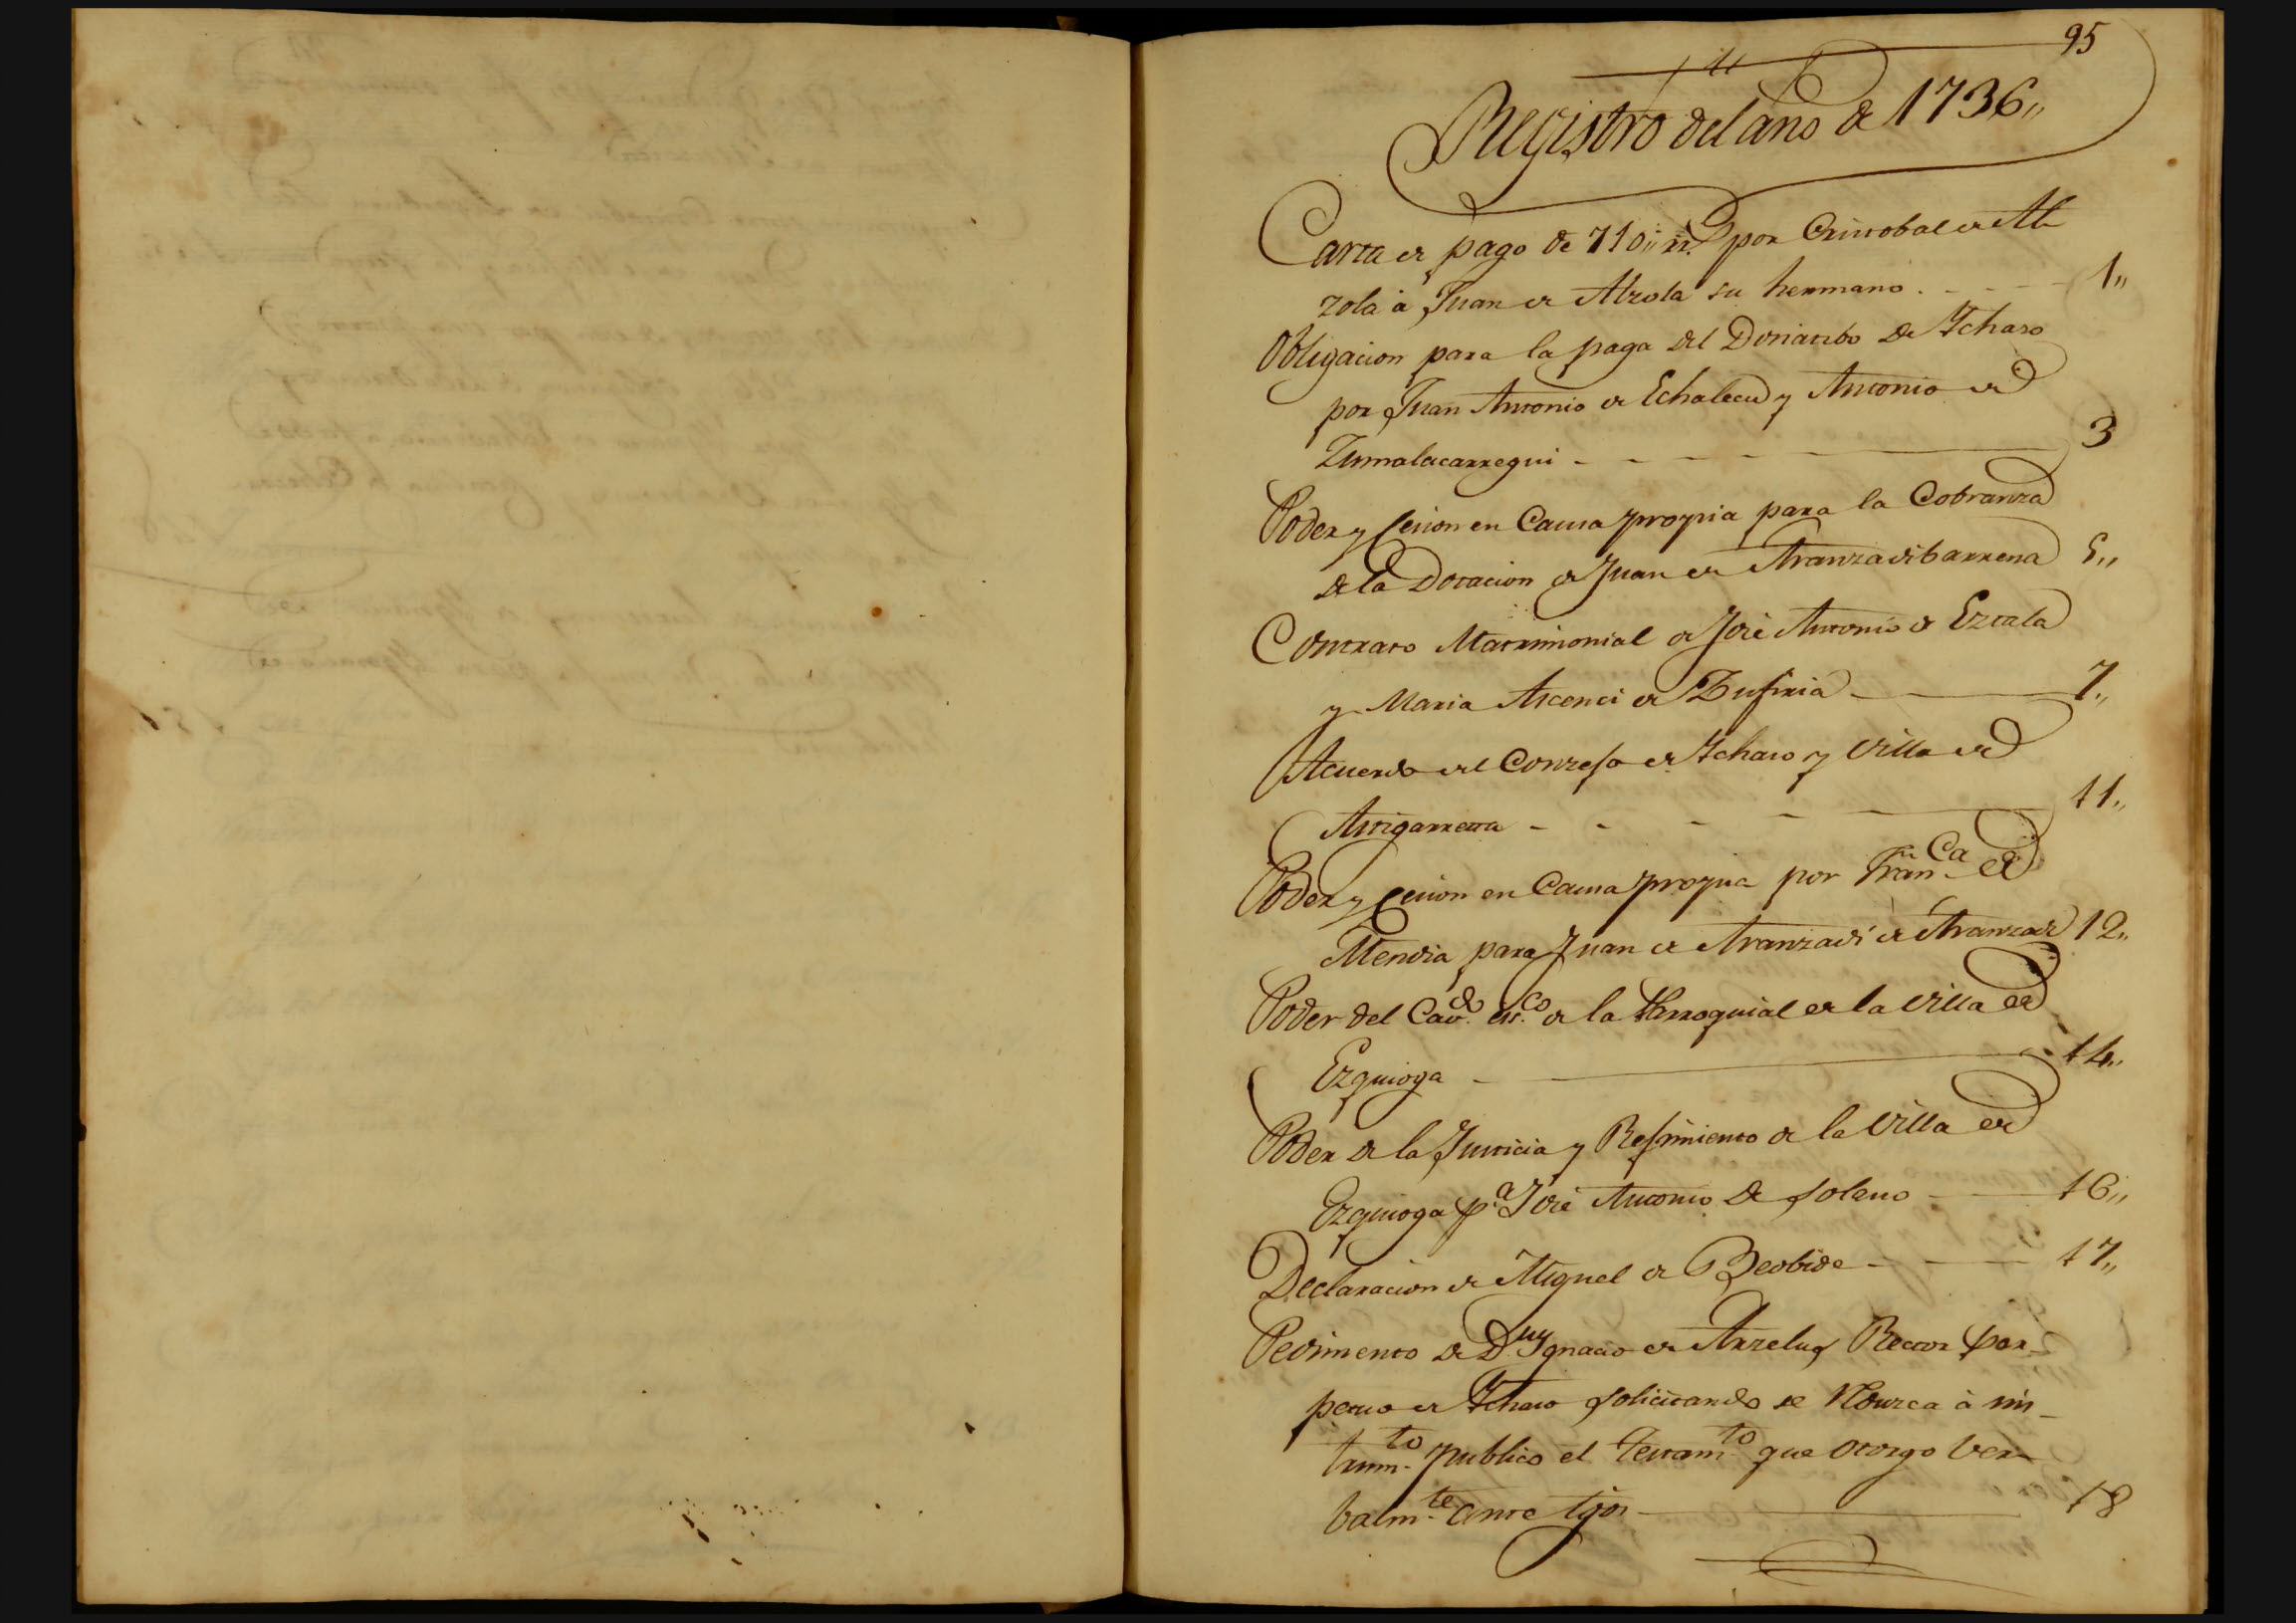 95
Registro del año de 1736,,
Carta de pago de 710,, rs. por Cristobal de Al
zola à Juan de Alzola su hermano. - - - 1,,
Obligacion para la paga del Donatibo de Ichaso
por Juan Antonio de Echalecu y Antonio de
Zumalacarregui - - - - 3
Poder y Cesion en Causa propria para la Cobranza
de la Dotacion de Juan de Aranzadibarrena 5,,
Contrato Matrimonial de José Antonio de Eztala
y Maria Ascenci de Zufiria - 7,,
Acuerdo del Conzejo de Ichaso y Villa de
Astigarreta - - - - 11,,
Poder y Cesion en Causa propria por Franca de
Mendia para Juan de Aranzadi de Aranzadi 12,,
Poder del Cavdo ecco de la Parroquial de la Villa de
Ezquioga - 14,,
Poder de la Justicia y Rejimiento de la Villa de
Ezquioga pa José Antonio de Soleno - 16,,
Declaracion de Miguel de Beobide - - - 17,,
Pedimento de Dn Ygnacio de Arzeluz Rector per-
petuo de Ichaso solicitando se reduzca à ins-
trumto publico el testamto que otorgo ver-
balmte ante tgos - 18